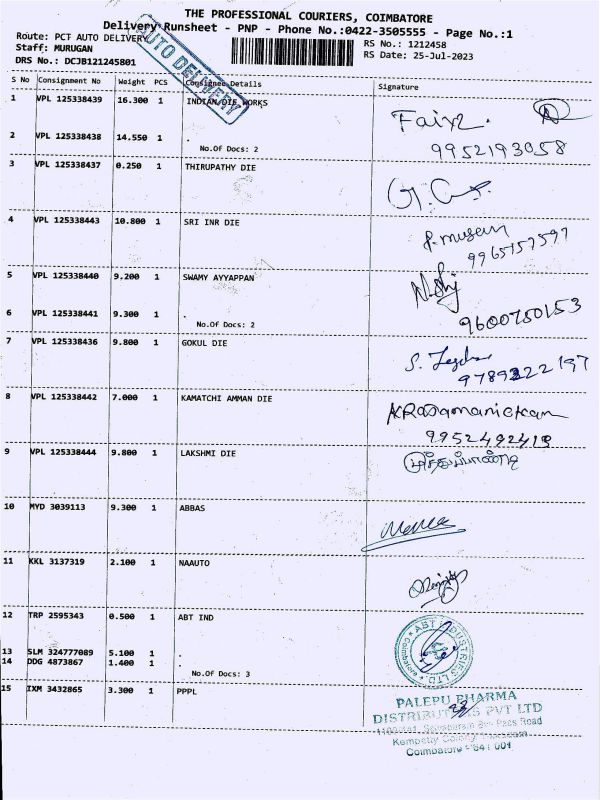 THE PROFESSIONAL COURIERS, COIMBATORE
Delivery Runsheet - PNP - Phone No.:0422-3505555 - Page No.:1
Route: PCT AUTO DELIVERY
Staff: MURUGAN
DRS No.: DCJB121245801
RS No.: 1212458
RS Date: 25-Jul-2023
AUTO DELIVERY
S No Consignment No Weight PCS Consignee Details Signature
1 VPL 125338439 16.300 1 INDIAN DIE WORKS
Faiyz.
2 VPL 125338438 14.550 1 .
No.Of Docs: 2
9952193058
3 VPL 125338437 0.250 1 THIRUPATHY DIE
4 VPL 125338443 10.800 1 SRI INR DIE
9965757597
5 VPL 125338440 9.200 1 SWAMY AYYAPPAN
6 VPL 125338441 9.300 1 .
No.Of Docs: 2
9600750153
7 VPL 125338436 9.800 1 GOKUL DIE
9789222197
8 VPL 125338442 7.000 1 KAMATCHI AMMAN DIE
9952492419
9 VPL 125338444 9.800 1 LAKSHMI DIE
முத்துப்பாண்டி
10 MYD 3039113 9.300 1 ABBAS
11 KKL 3137319 2.100 1 NAAUTO
12 TRP 2595343 0.500 1 ABT IND
ABT INDUSTRIES LTD
Coimbatore
13 SLM 324777089 5.100 1 .
14 DDG 4873867 1.400 1 .
No.Of Docs: 3
15 IXM 3432865 3.300 1 PPPL
PALEPU PHARMA
DISTRIBUTORS PVT LTD
Coimbatore - 641 001